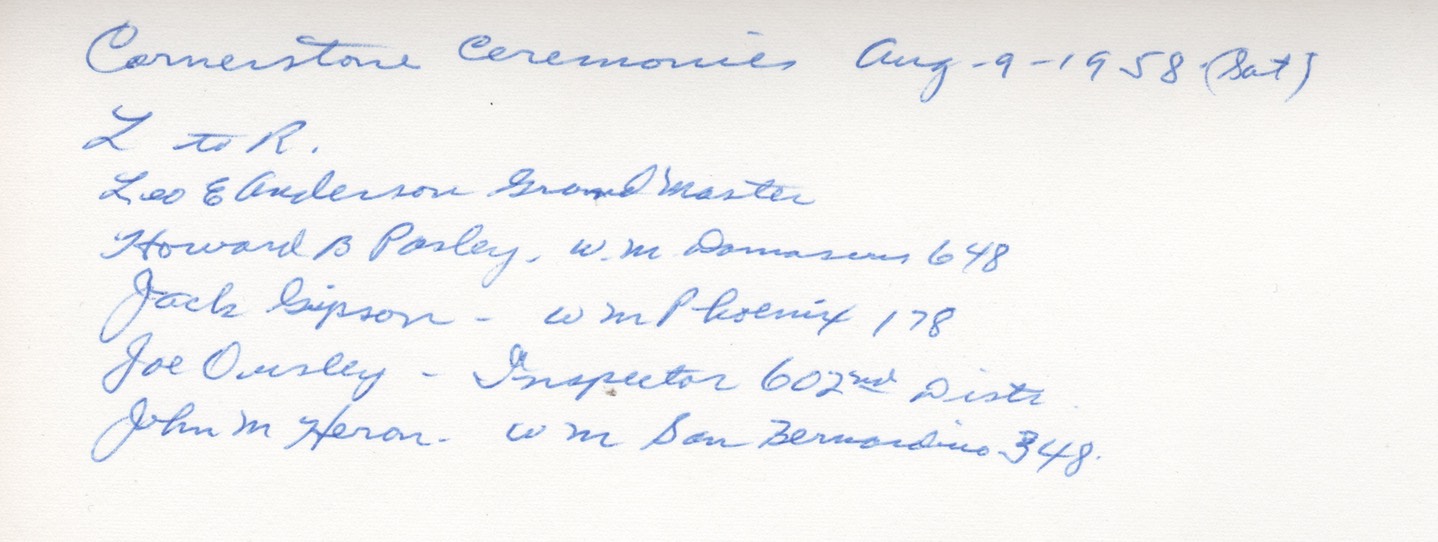 Cornerstone Ceremonies Aug-9-1958 (Sat)
L to R.
Leo E Anderson Grand Master
Howard B Pasley, W.M Damascus 648
Jack Gipson - W M Phoenix 178
Joe Ousley - Inspector 602nd Distr
John M Heron - W M San Bernardino 348.